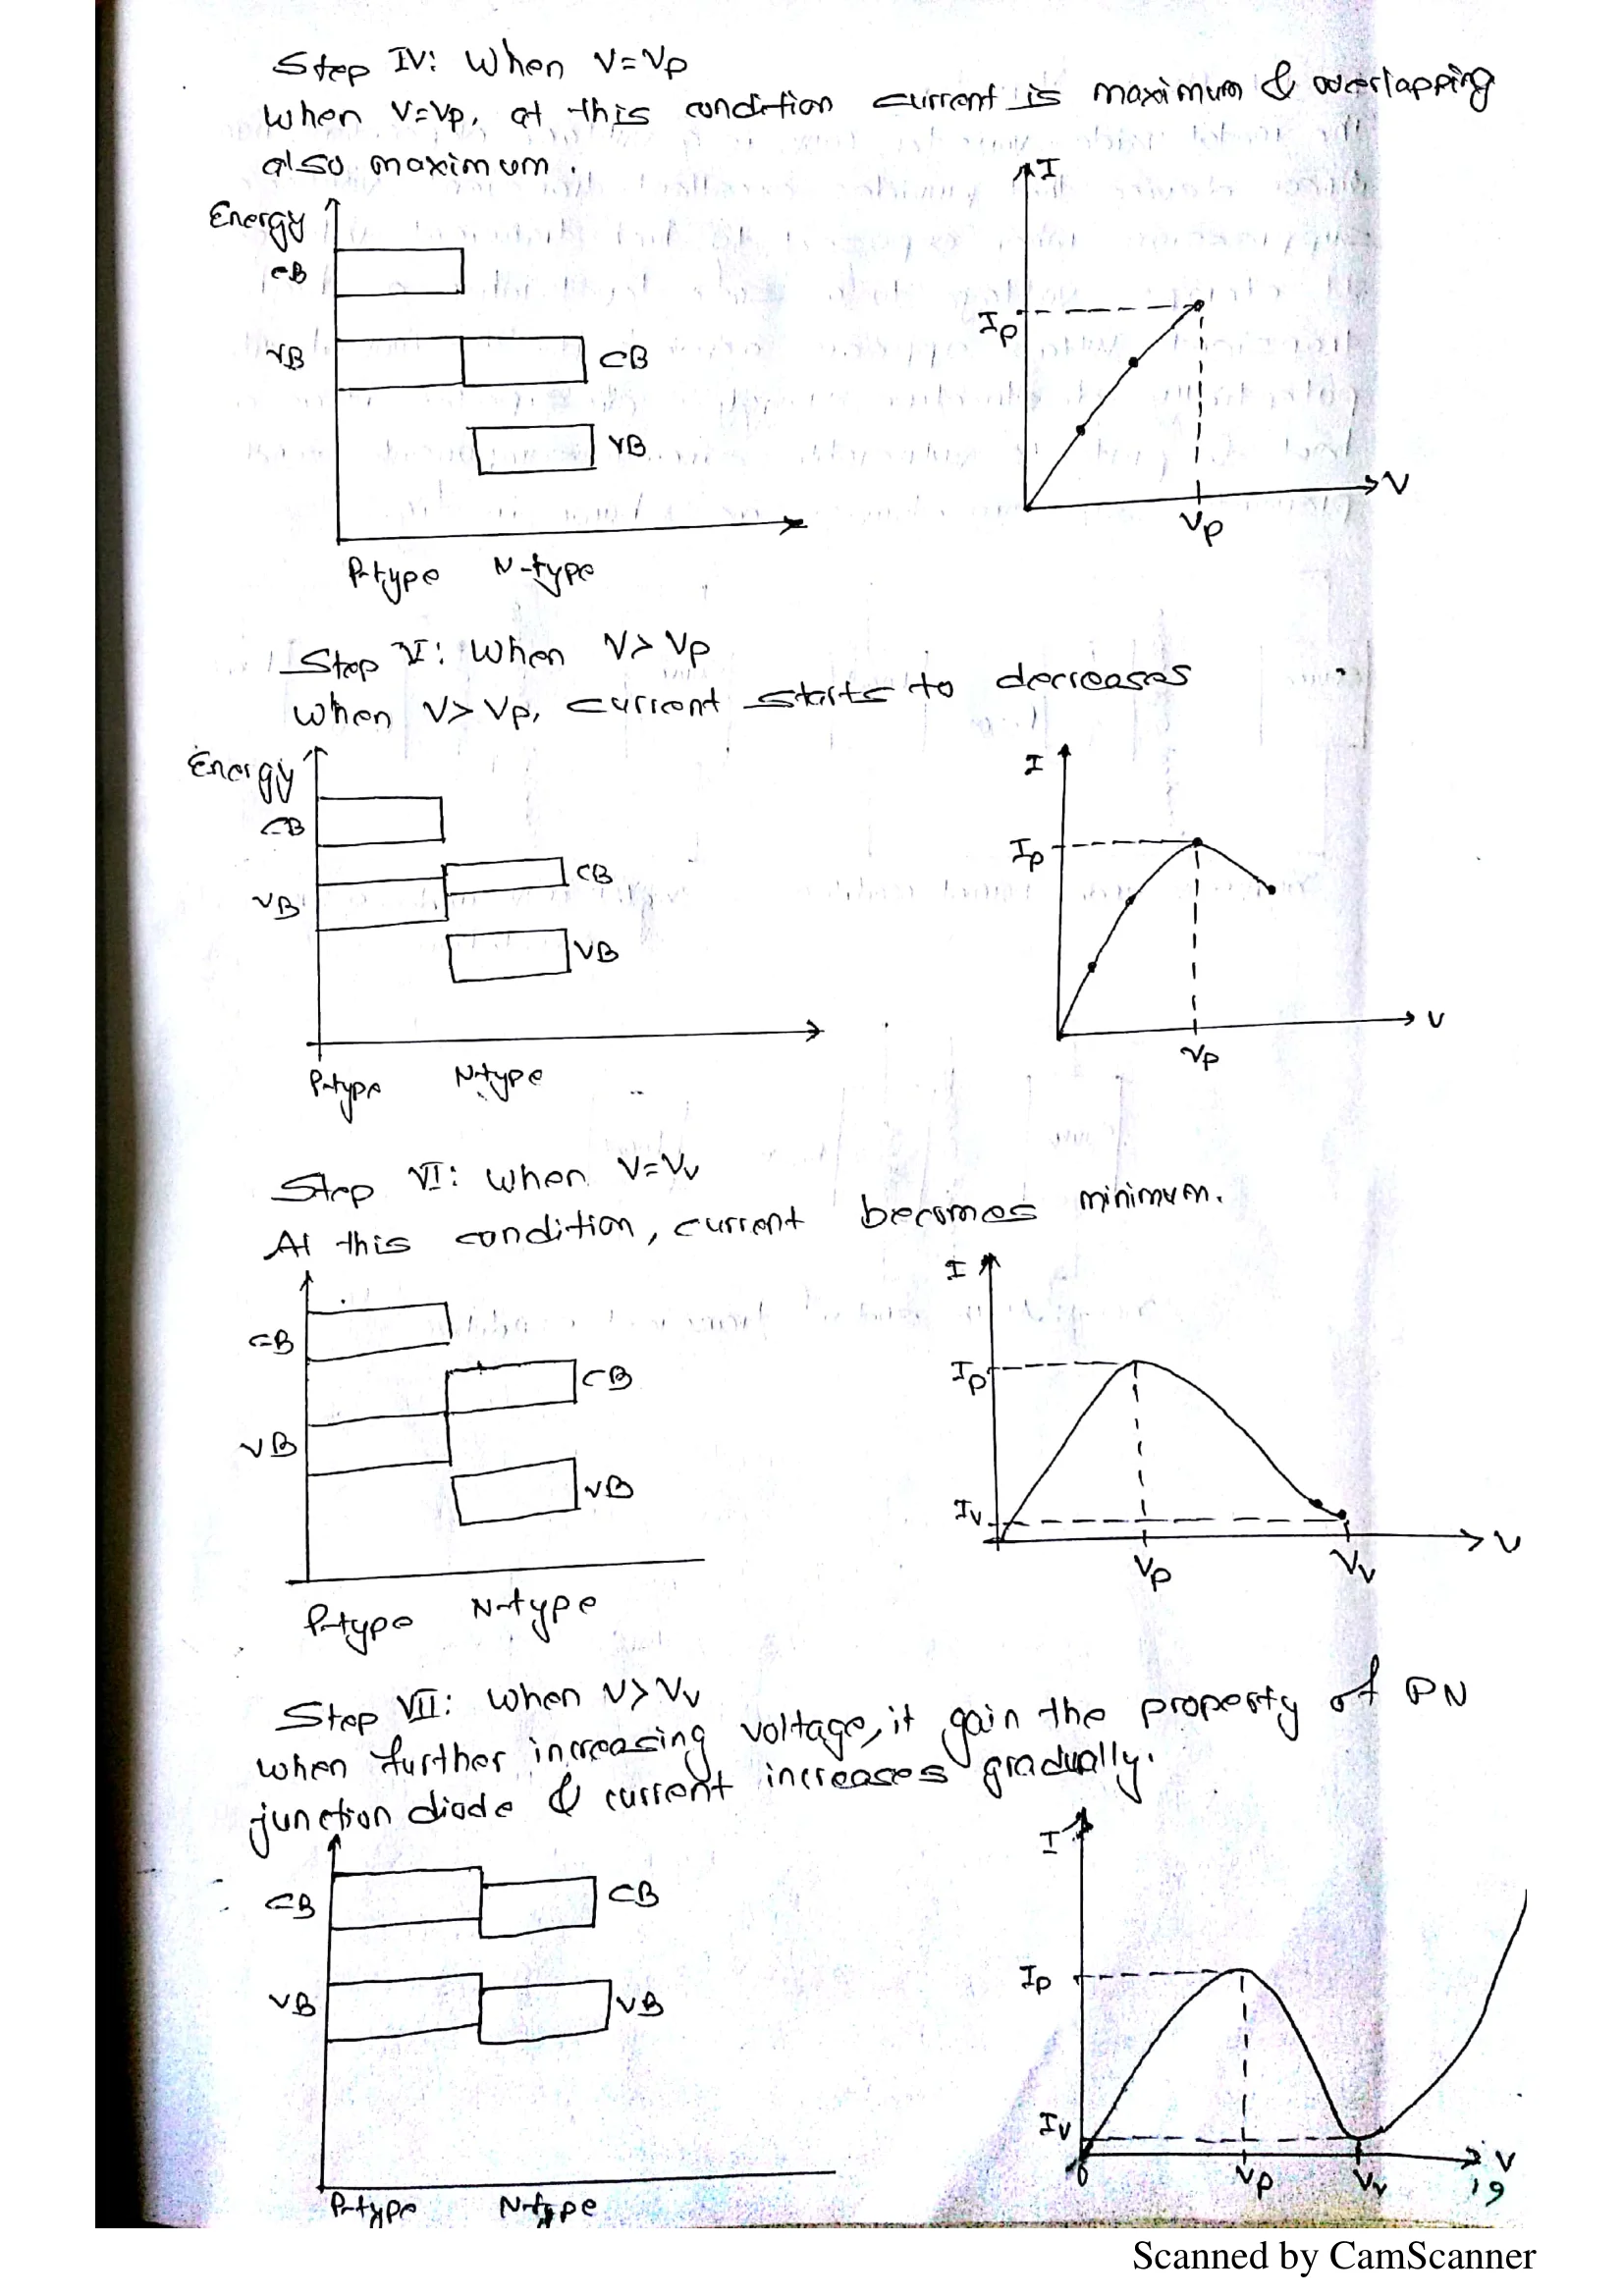 Step IV: When V=Vp
When V=Vp, at this condition current is maximum & overlapping
also maximum.
Energy
CB
VB
CB
VB
P-type N-type
I
Ip
V
Vp
Step V: When V> Vp
When V> Vp, current starts to decreases
Energy
CB
VB
CB
VB
P-type N-type
I
Ip
V
Vp
Step VI: When V=Vv
At this condition, current becomes minimum.
CB
VB
CB
VB
P-type N-type
I
Ip
Iv
V
Vp
Vv
Step VII: When V> Vv
when further increasing voltage, it gain the property of PN
junction diode & current increases gradually.
CB
VB
CB
VB
P-type N-type
I
Ip
Iv
0
Vp
Vv
V
19
Scanned by CamScanner